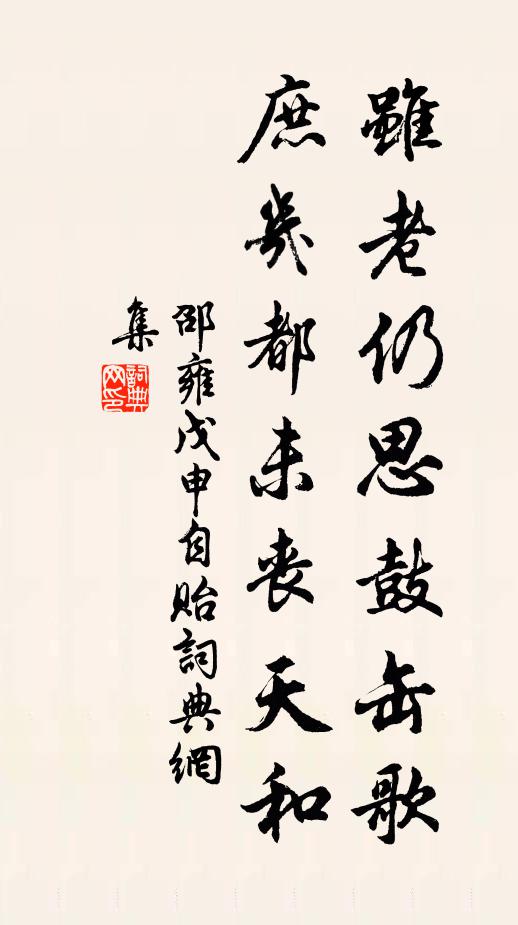 雖老仍思鼓缶歌
庶幾都未喪天和
邵雍戊申自貽詞典網
集
詞典網印